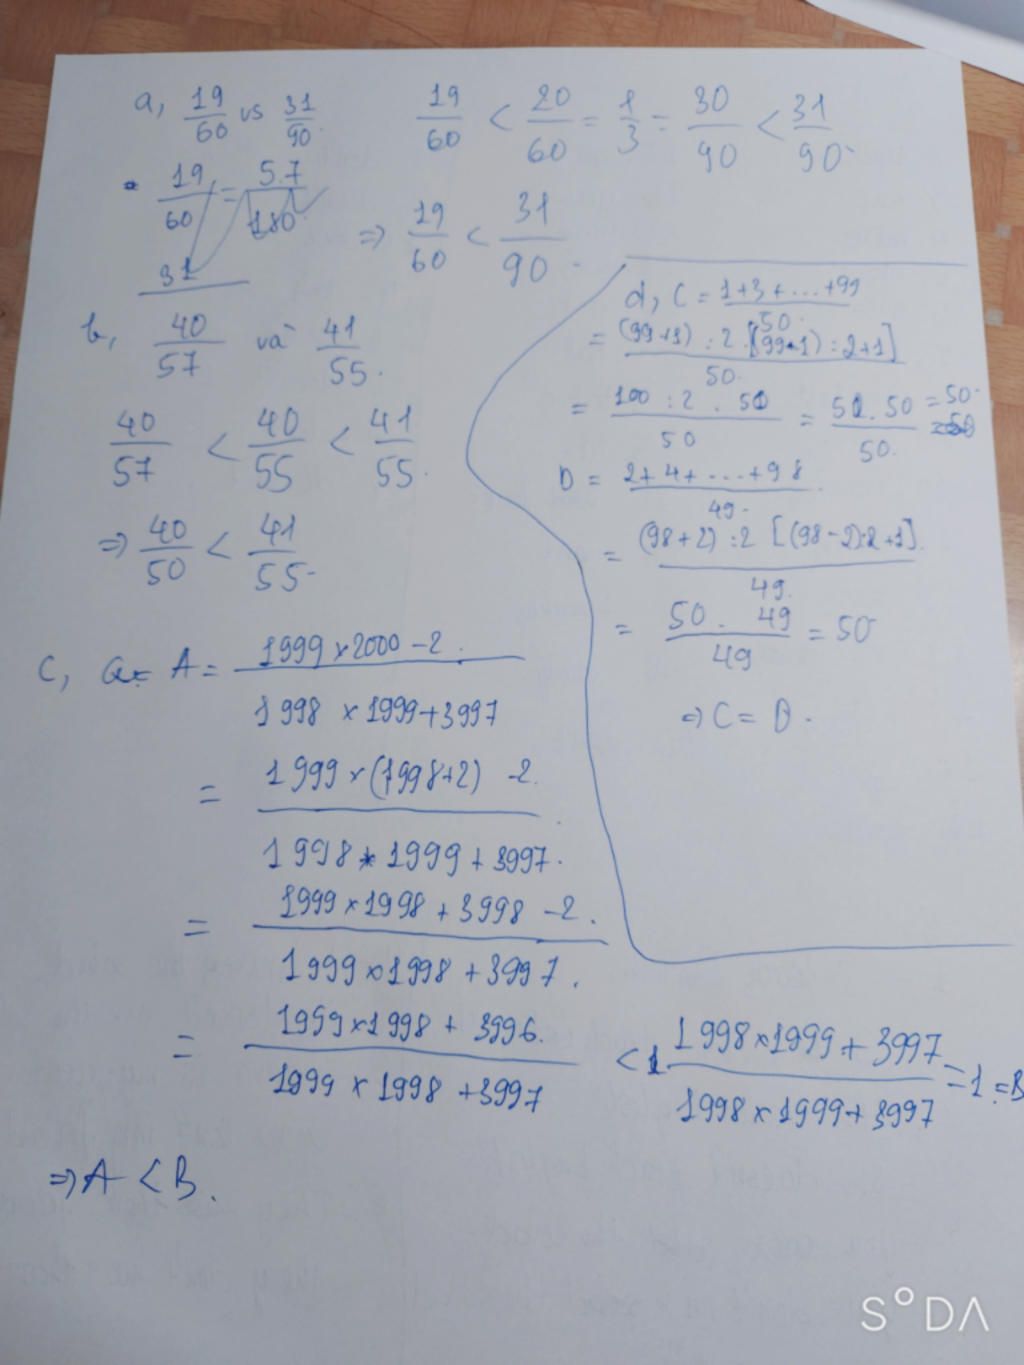 a, 19/60 vs 31/90. 19/60 < 20/60 = 1/3 = 30/90 < 31/90.
19/60 = 57/180
31
=> 19/60 < 31/90.
b, 40/57 và 41/55.
40/57 < 40/55 < 41/55.
=> 40/50 < 41/55.
d, C = 1+3+...+99/50.
= (99+1):2.[(99-1):2+1]/50.
= 100:2.50/50 = 50.50/50. = 50.
D = 2+4+...+98/49.
= (98+2):2[(98-2):2+1]./49.
= 50.49/49 = 50
=> C = D.
c, A = 1999×2000-2./1998×1999+3997
= 1999×(1998+2)-2./1998×1999+3997.
= 1999×1998+3998-2./1999×1998+3997.
= 1999×1998+3996./1999×1998+3997 < 1998×1999+3997/1998×1999+3997 = 1. = B
=> A < B.
S°DA